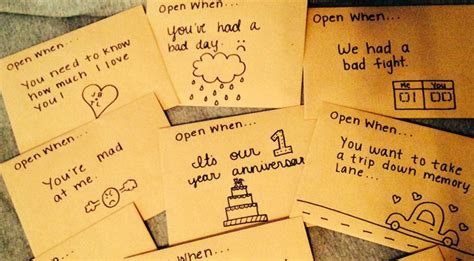 Open When...
You need to know
how much I love
you!
Open When...
You've had a
bad day.
Open When...
We had a
bad fight.
Me You
Open When...
You're mad
at me.
Open When...
It's our 1
year anniversary
Open When...
You want to take
a trip down memory
Lane...
When...
When...